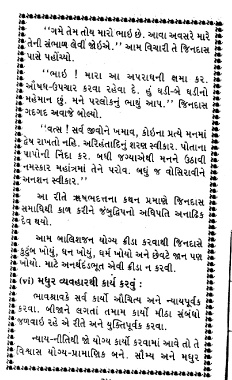 "ગમે તેમ તોય મારો ભાઈ છે. આવા અવસરે મારે
તેની સંભાળ લેવી જોઈએ." આમ વિચારી તે જિનદાસ
પાસે પહોંચ્યો.
"ભાઈ ! મારા આ અપરાધની ક્ષમા કર.
ઔષધ-ઉપચાર કરવા રહેવા દે. હું ઘડી-બે ઘડીનો
મહેમાન છું. મને પરલોકનું ભાથું આપ." જિનદાસ
ગદગદ અવાજે બોલ્યો.
"વત્સ ! સર્વ જીવોને ખમાવ, કોઈના પ્રત્યે મનમાં
દ્વેષ રાખતો નહિ. અરિહંતાદિનું શરણ સ્વીકાર. પોતાના
પાપોની નિંદા કર. બધી જગ્યાએથી મનને ઉઠાવી
નમસ્કાર મહામંત્રમાં તેને પરોવ. બધું જ વોસિરાવીને
અનશન સ્વીકાર."
આ રીતે ઋષભદત્તના કથન પ્રમાણે જિનદાસ
સમાધિથી કાળ કરીને જંબુદ્વિપનો અધિપતિ અનાદિક
દેવ થયો.
આમ બાલિશજન યોગ્ય ક્રીડા કરવાથી જિનદાસે
કુટુંબ ખોયું, ધન ખોયું, ધર્મ ખોયો અને છેવટે જાન પણ
ખોયો. માટે અનર્થદંડભૂત એવી ક્રીડા ન કરવી.
(vi) મધુર વ્યવહારથી કાર્ય કરવું :
ભાવશ્રાવકે સર્વ કાર્યો ઔચિત્ય અને ન્યાયપૂર્વક
કરવા. બીજાને લગતાં તમામ કાર્યો મીઠા સંબંધો
જળવાઈ રહે એ રીતે અને યુક્તિપૂર્વક કરવા.
ન્યાય-નીતિથી જો યોગ્ય કાર્યો કરવામાં આવે તો તે
વિશ્વાસ યોગ્ય-પ્રામાણિક બને. સૌમ્ય અને મધુર